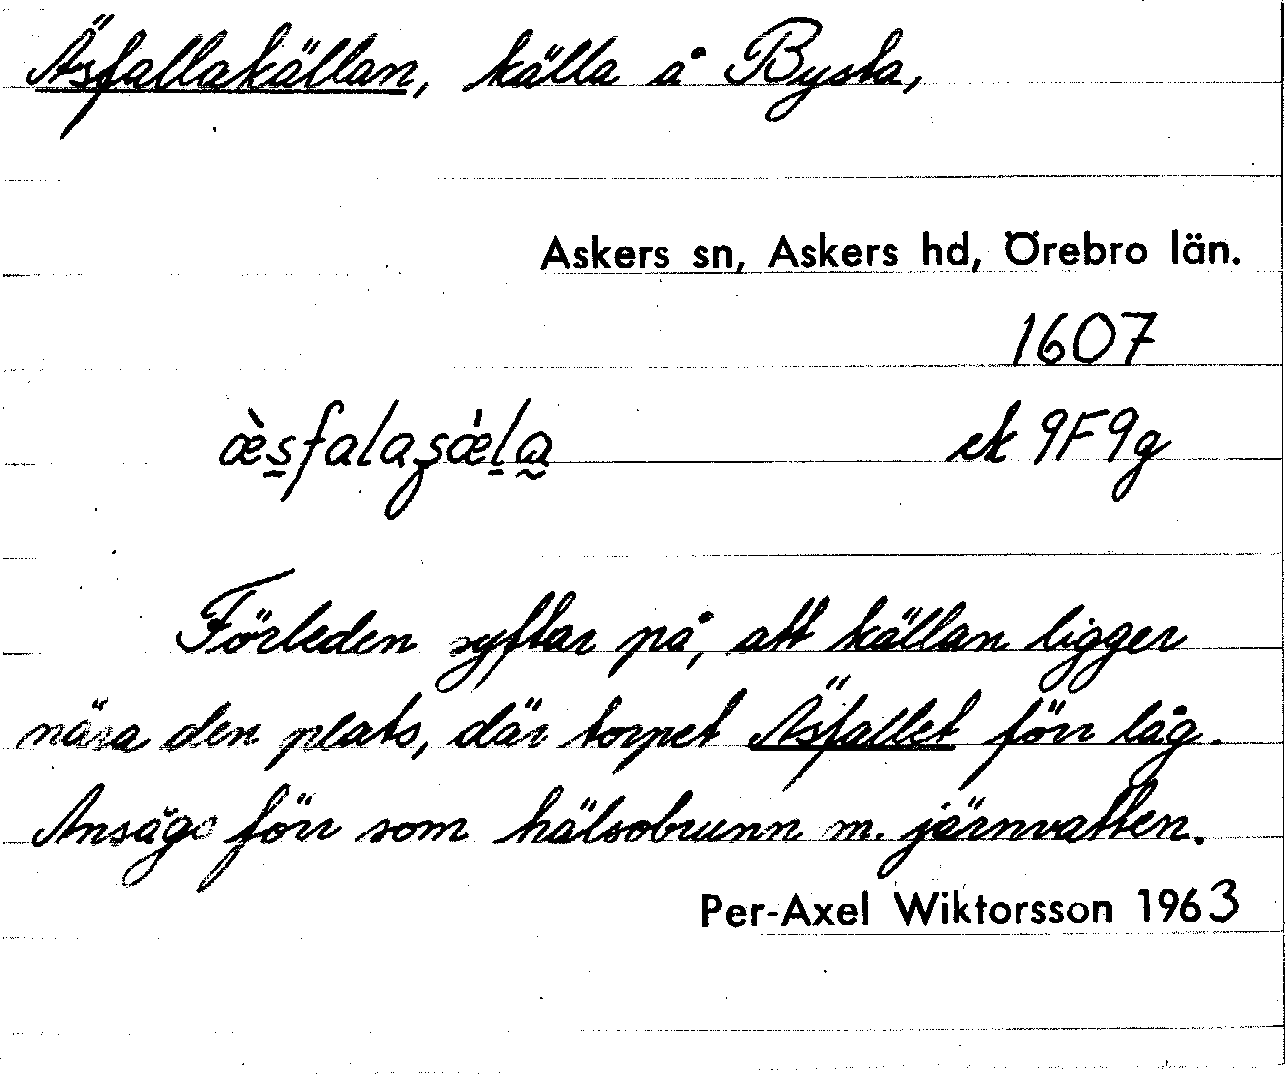 Äsfallakällan, källa å Bysta,
Askers sn, Askers hd, Örebro län.
1607
ek 9F9g
Förleden syftar på, att källan ligger
nära den plats, där torpet Äsfallet förr låg.
Ansågs förr som hälsobrunn m. järnvatten.
Per-Axel Wiktorsson 1963